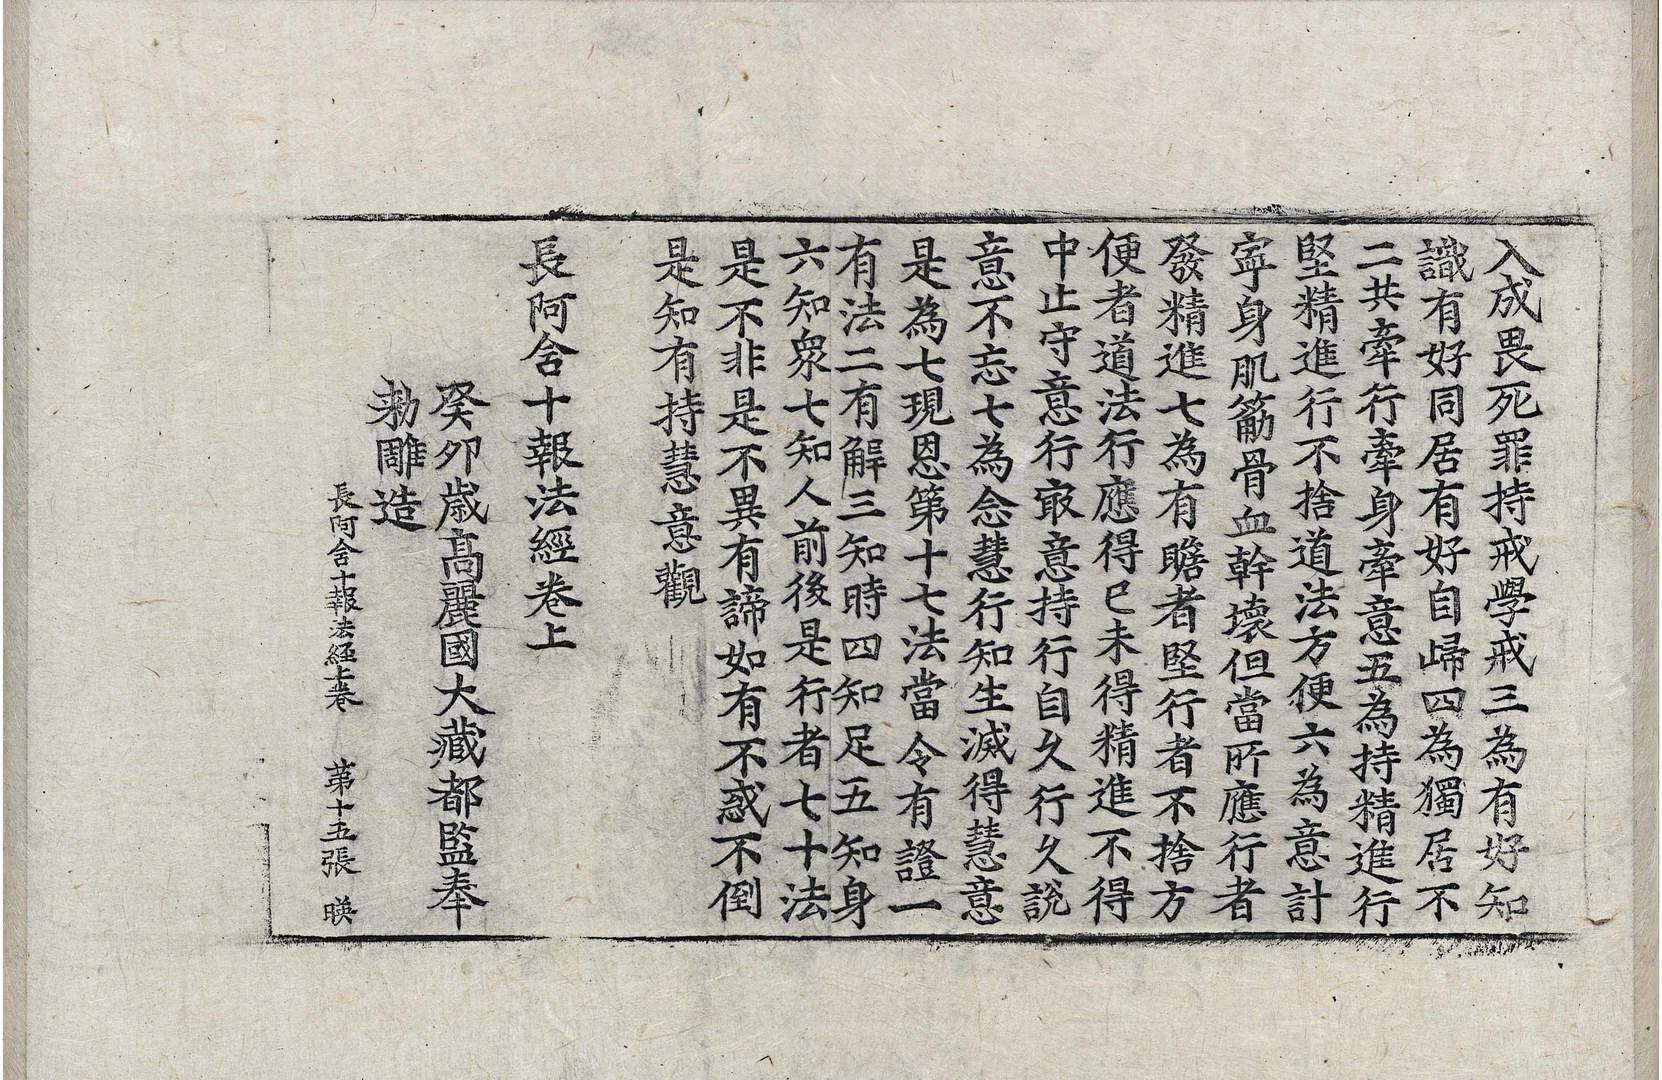 入成畏死罪持戒學戒三為有好知
識有好同居有好自歸四為獨居不
二共牽行牽身牽意五為持精進行
堅精進行不捨道法方便六為意計
寜身肌筋骨血幹壞但當所應行者
發精進七為有瞻者堅行者不捨方
便者道法行應得已未得精進不得
中止守意行㝡意持行自久行久說
意不忘七為念慧行知生滅得慧意
是為七現恩第十七法當令有證一
有法二有解三知時四知足五知身
六知衆七知人前後是行者七十法
是不非是不異有諦如有不惑不倒
是知有持慧意觀
長阿含十報法經卷上
癸卯歲高麗國大藏都監奉
勑雕造
長阿含十報法經上卷 第十五張 暎